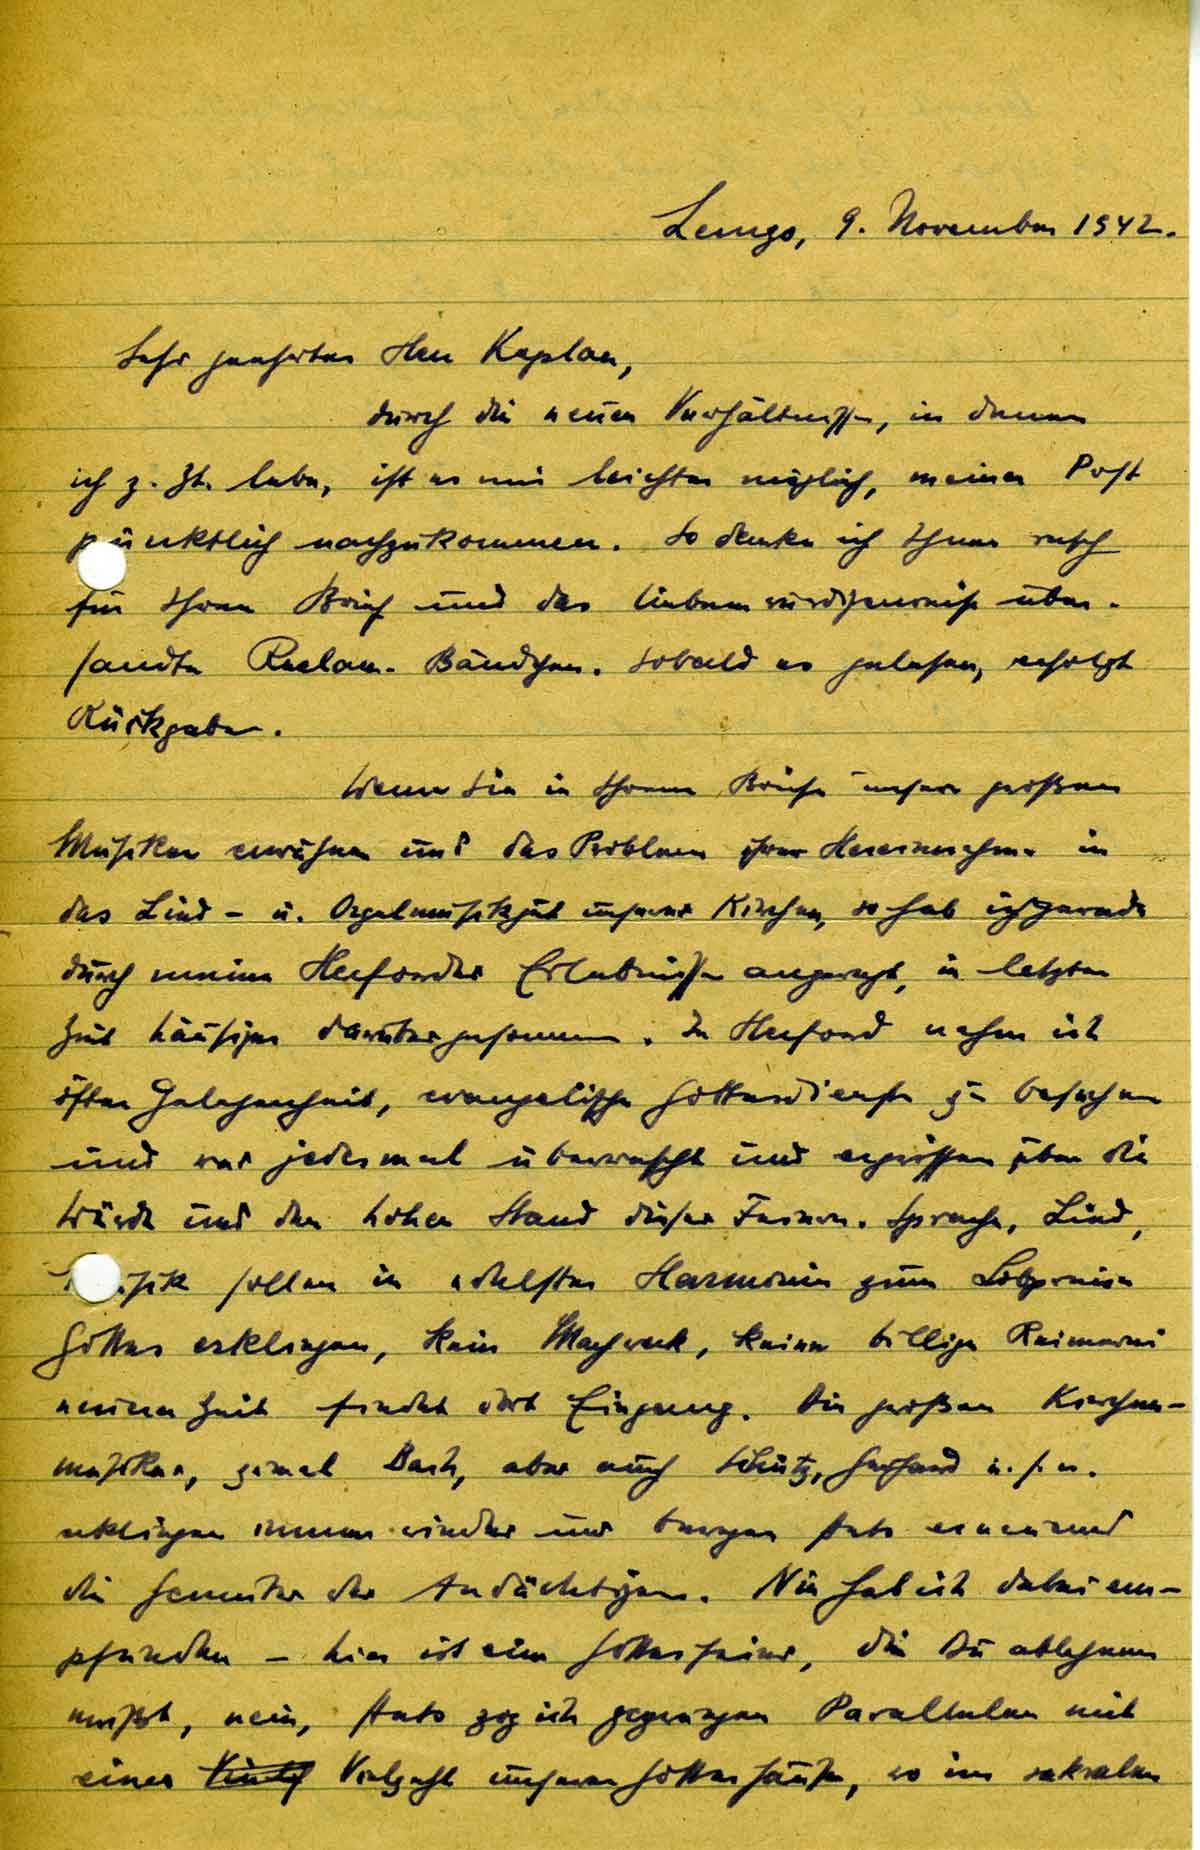 Lemgo, 9. November 1942.
Sehr geehrter Herr Kaplan,
durch die neuen Verhältnisse, in denen
ich z. Zt. lebe, ist es mir leichter möglich, meiner Post
pünktlich nachzukommen. So danke ich Ihnen rasch
für Ihren Brief und das liebenswürdigerweise über-
sandte Reclam-Bändchen. Sobald es gelesen, erfolgt
Rückgabe.
Wenn Sie in Ihrem Briefe unsere großen
Musiker erwähnen und das Problem ihrer Hereinnahme in
das Lied- u. Orgelmusikgut unserer Kirchen, so hab ich gerade
durch meine Herforder Erlebnisse angeregt, in letzter
Zeit häufiger darüber gesonnen. In Herford nahm ich
öfter Gelegenheit, evangelische Gottesdienste zu besuchen
und war jedesmal überrascht und ergriffen über die
Würde und den hohen Stand dieser Feiern. Sprache, Lied,
Musik sollen in edelster Harmonie zum Lobpreise
Gottes erklingen, kein Machwerk, keine billige Reimerei
neuerer Zeit findet dort Eingang. Die großen Kirchen-
musiker, zumal Bach, aber auch Schütz, Gerhard u.s.w.
erklingen immer wieder und bewegen stets erneuernd
die Gemüter der Andächtigen. Nie hab ich dabei em-
pfunden – hier ist eine Gottesfeier, die Du ablehnen
mußt, nein, stets zog ich gezwungen Parallelen mit
einer Vielzahl unserer Gotteshäuser, wo im sakralen